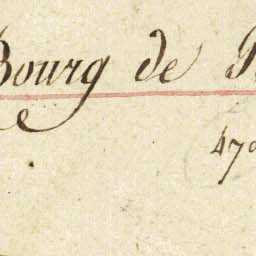 Bourg de
47